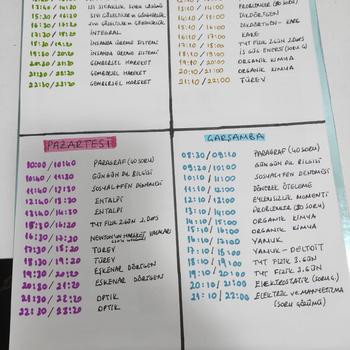 13:40 / 14:40 ISI SICAKLIK SORU ÇÖZÜMÜ
14:30 / 15:20 SIVI ÇÖZELTİLER & ÇÖZÜNÜRLÜK
16:30 / 17:20
17:30 / 18:20 İNTEGRAL
18:30 / 19:20 İNSANDA ÜREME SİSTEMİ
19:30 / 20:20 İNSANDA ÜREME SİSTEMİ
20:30 / 21:20 ÇEMBERSEL HAREKET
21:30 / 22:20 ÇEMBERSEL HAREKET
22:30 / 23:20 ÇEMBERSEL HAREKET
13:10 / 14:00 PROBLEMLER
14:10 / 15:00 DİKDÖRTGEN
15:10 / 16:00 DİKDÖRTGEN - KARE
16:10 / 17:00 KARE
17:10 / 18:00 TYT FİZİK 2.GÜN
18:10 / 19:00 İŞ GÜÇ ENERJİ
19:10 / 20:00 ORGANİK KİMYA
20:10 / 21:00 ORGANİK KİMYA
21:10 / 22:00 TÜREV
PAZARTESİ
10:00 / 10:40 PARAGRAF (40 SORU)
10:40 / 11:30 GÜNGÖR DİL BİLGİSİ
11:40 / 12:30 SOSYAL + FEN DENEMESİ
12:40 / 13:30 ENTALPİ
13:40 / 14:30 ENTALPİ
15:30 / 16:20 TYT FİZİK 2.GÜN
16:30 / 17:20 NEWTON'UN HAREKET YASALARI
17:30 / 18:20 TÜREV
18:30 / 19:20 TÜREV
19:30 / 20:20 EŞKENAR DÖRTGEN
20:30 / 21:20 EŞKENAR DÖRTGEN
21:30 / 22:20 OPTİK
22:30 / 23:20 OPTİK
ÇARŞAMBA
08:30 / 09:10 PARAGRAF (40 SORU)
09:10 / 10:00 GÜNGÖR DİL BİLGİSİ
10:10 / 11:00 SOSYAL + FEN DENEMESİ
11:10 / 12:00 DÖNEREK ÖTELEME
12:10 / 13:00 EYLEMSİZLİK MOMENTİ
13:10 / 14:00 PROBLEMLER (80 SORU)
14:10 / 15:00 ORGANİK KİMYA
15:10 / 16:00 ORGANİK KİMYA
16:10 / 17:00 YAMUK
17:10 / 18:00 YAMUK - DELTOİT
18:10 / 19:00 TYT FİZİK 3.GÜN
19:10 / 20:00 TYT FİZİK 3.GÜN
20:10 / 21:00 ELEKTROSTATİK (SORU Ç.)
21:10 / 22:00 ELEKTRİK VE MANYETİZMA
(SORU ÇÖZÜMÜ)